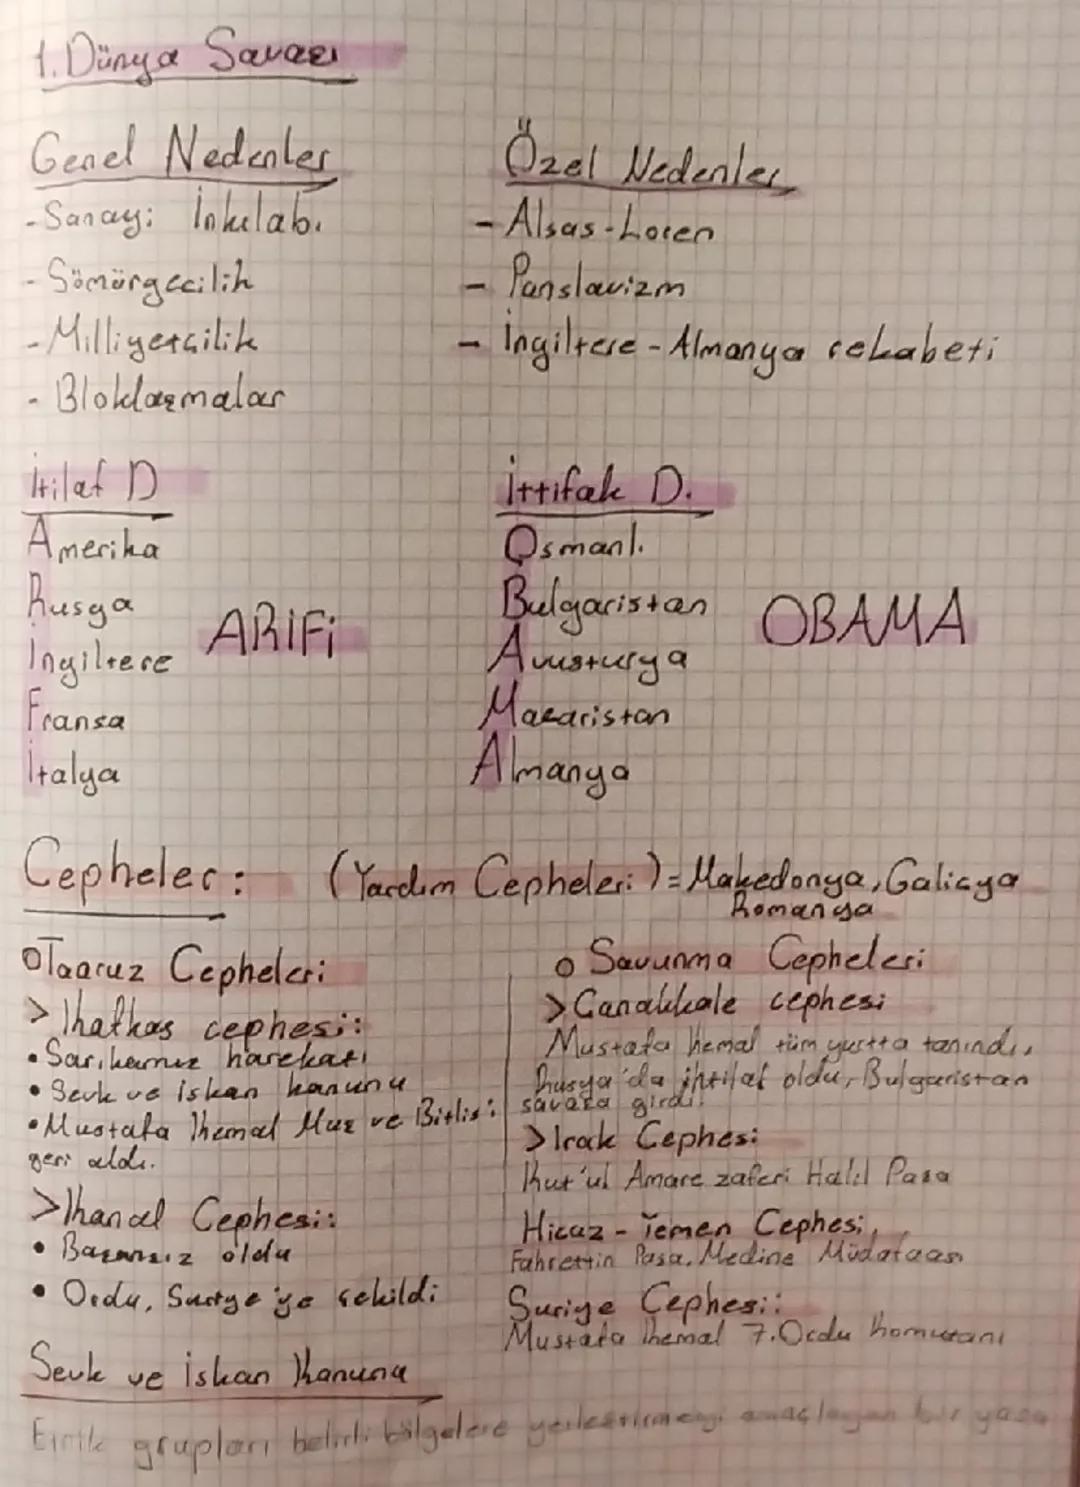 1. Dünya Savaşı
Genel Nedenler
- Sanayi İnkılabı
- Sömürgecilik
- Milliyetçilik
- Bloklaşmalar
Özel Nedenler
- Alsas-Loren
- Panslavizm
- İngiltere - Almanya rekabeti
İtilaf D
Amerika
Rusya
İngiltere
Fransa
İtalya
ARIFİ
İttifak D.
Osmanlı
Bulgaristan
Avusturya
Macaristan
Almanya
OBAMA
Cepheler: (Yardım Cepheleri) = Makedonya, Galiçya
Romanya
o Taaruz Cepheleri
> Kafkas cephesi:
• Sarıkamış harekatı
• Sevk ve iskan kanunu
• Mustafa Kemal Muş ve Bitlis'i
geri aldı.
> Kanal Cephesi:
• Başarısız oldu
• Ordu, Suriye'ye çekildi
o Savunma Cepheleri
> Çanakkale cephesi
Mustafa Kemal tüm yurtta tanındı,
Rusya'da ihtilal oldu, Bulgaristan
savaşa girdi.
> Irak Cephesi
Kut'ul Amare zaferi Halil Paşa
Hicaz - Yemen Cephesi,
Fahrettin Paşa, Medine Müdafaası
Suriye Cephesi:
Mustafa Kemal 7. Ordu komutanı
Sevk ve iskan Kanunu
Etnik grupları belirli bölgelere yerleştirmeyi amaçlayan bir yasa